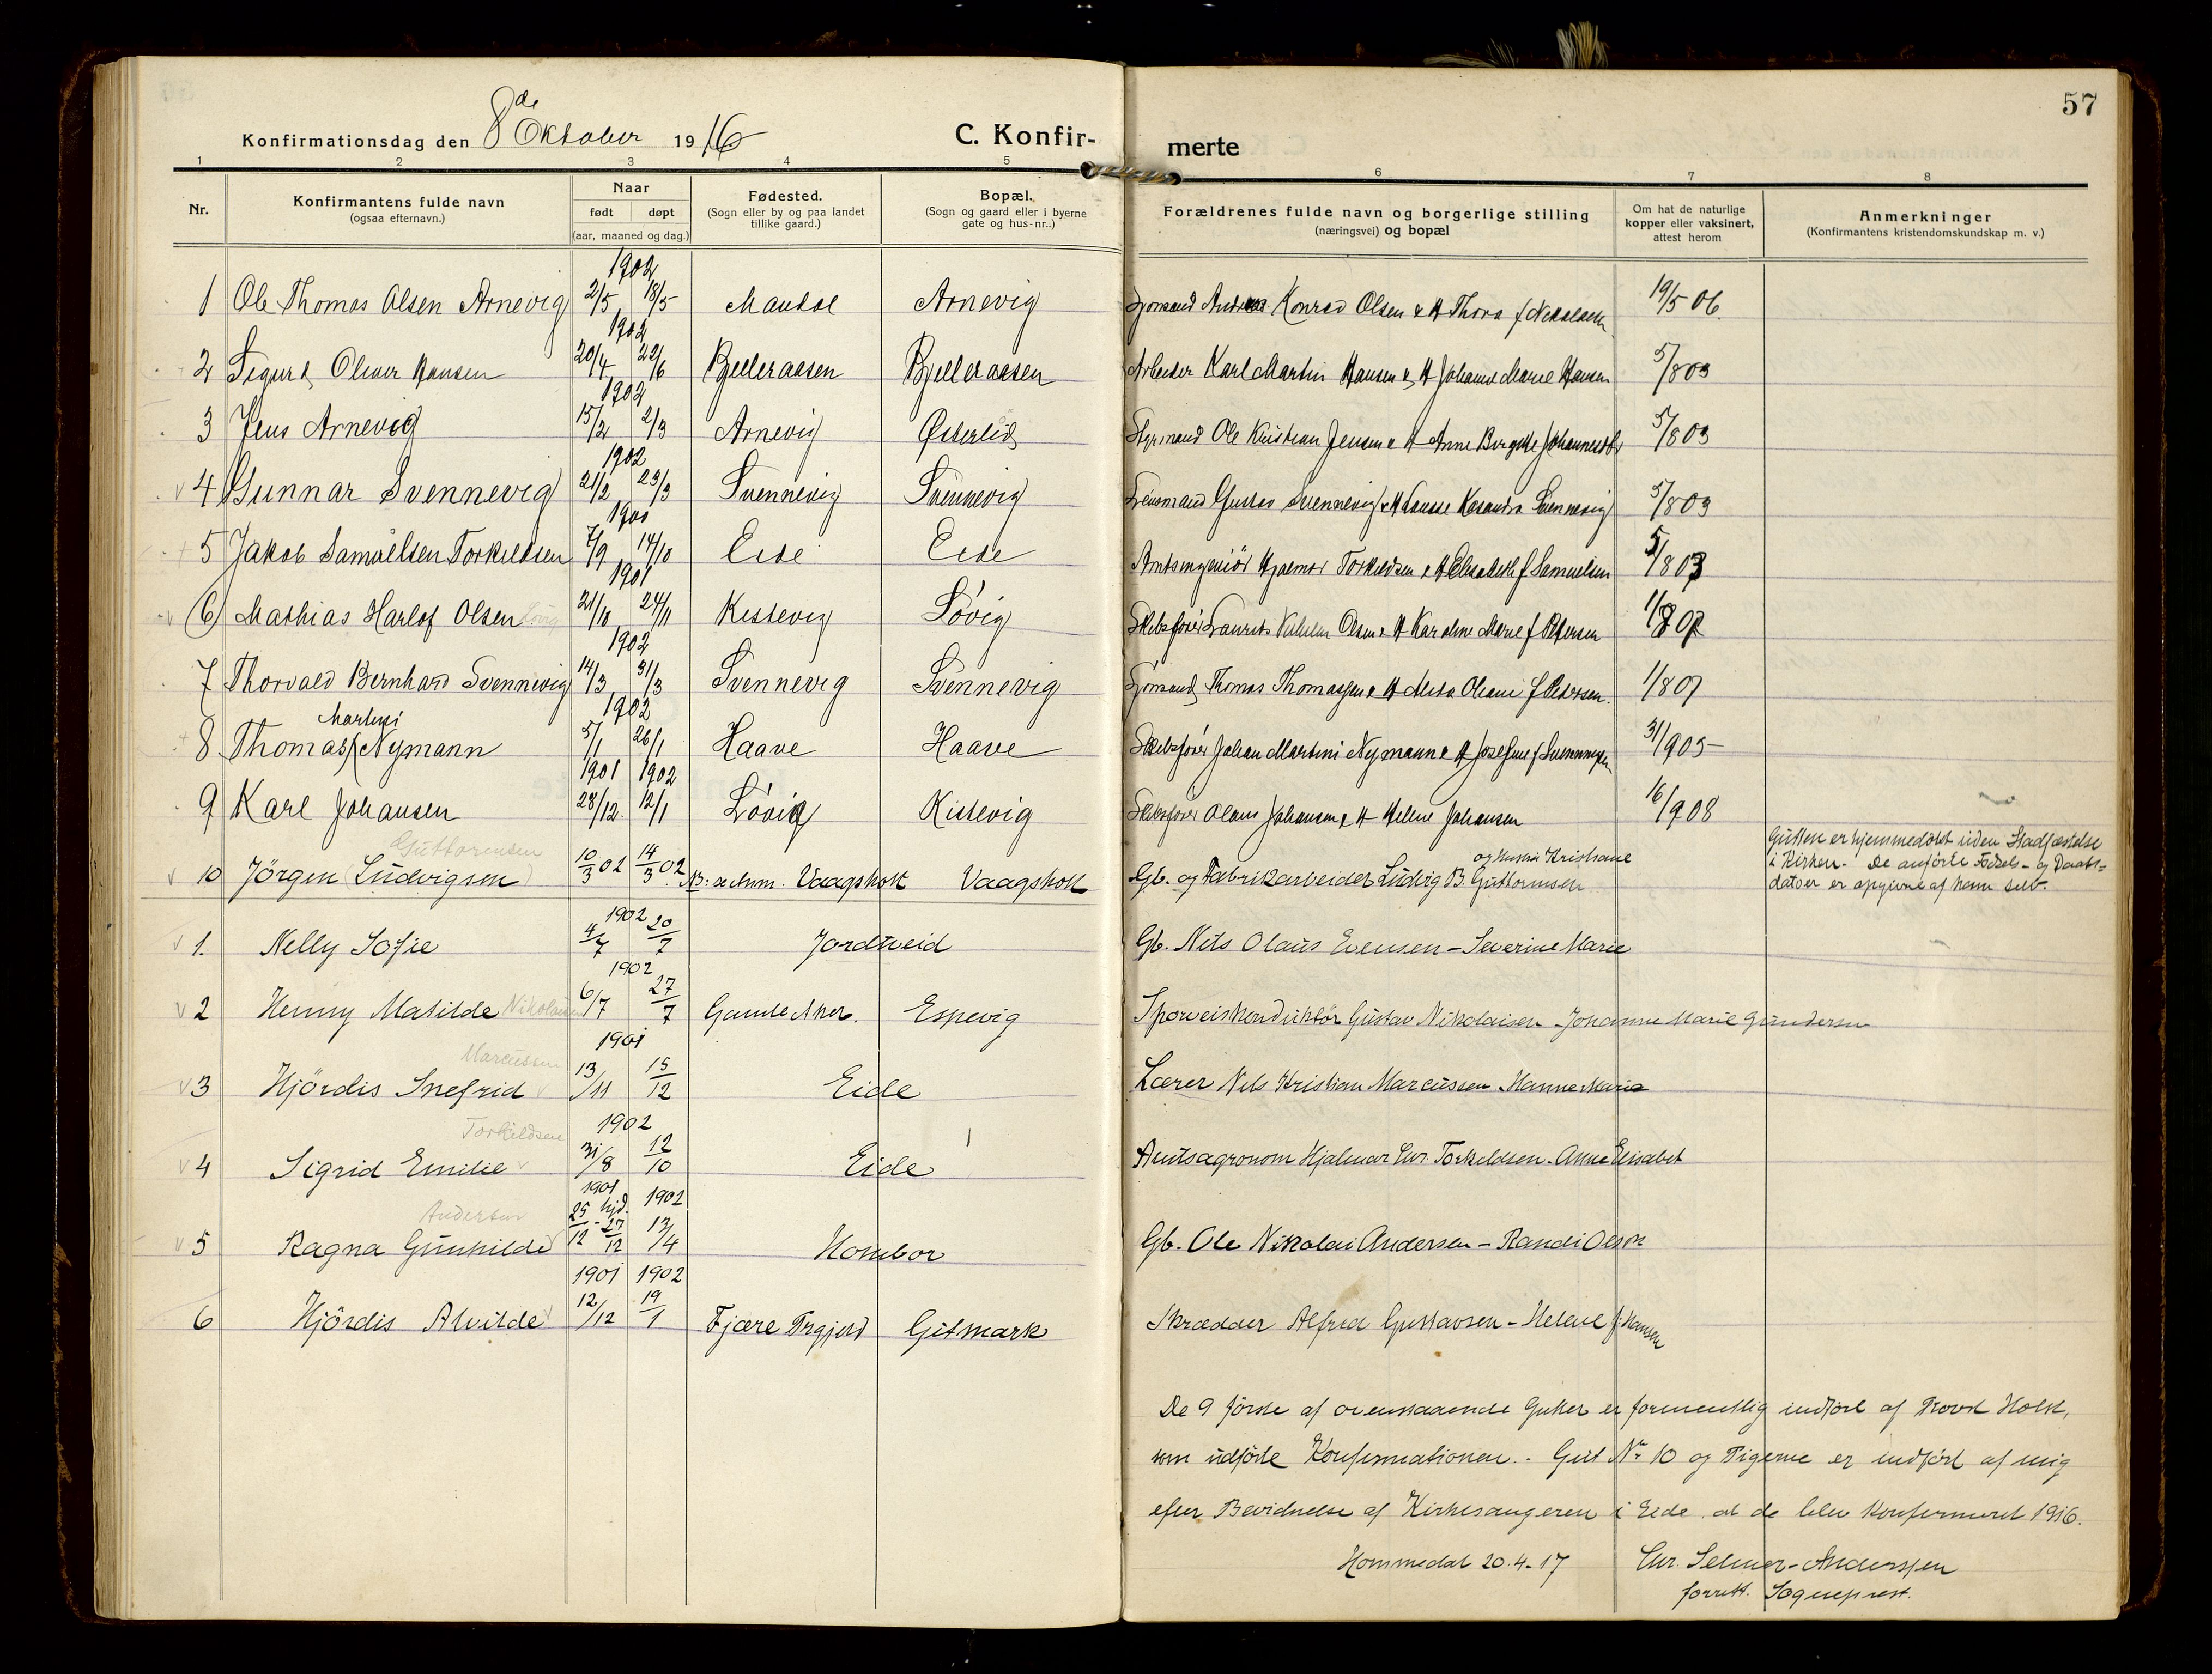 57
Konfirmationsdag den 8de Oktober 1916
C. Konfir-merte
1 2 3 4 5 6 7 8
Nr.
Konfirmantens fulde navn
(ogsaa efternavn.)
Naar
født døpt
(aar, maaned og dag.)
Fødested.
(Sogn eller by og paa landet
tillike gaard.)
Bopæl.
(Sogn og gaard eller i byerne
gate og hus-nr..)
Forældrenes fulde navn og borgerlige stilling
(næringsvei) og bopæl
Om hat de naturlige
kopper eller vaksinert,
attest herom
Anmerkninger
(Konfirmantens kristendomskundskap m. v.)
1902
1 Ole Thomas Olsen Arnevig 2/5 18/5 Mandal Arnevig Sjømand Andreas Konrad Olsen & H Thora f Nikolaisen 19/5 06.
1902
2 Sigurd Oliver Hansen 20/4 22/6 Bjelleraasen Bjelleraasen Arbeider Karl Martin Hansen & H Johanne Marie Hansen 5/8 03
1902
3 Jens Arnevig 15/2 2/3 Arnevig Østerlid Styrmand Ole Kristian Jensen & H Anne Birgitte 5/8 03
1902
4 Gunnar Svennevig 21/2 23/3 Svennevig Svennevig Lensmand Gustav Svennevig & H Svennevig 5/8 03
1901
5 Jakob Samuelsen Torkildsen 7/9 14/10 Eide Eide Amtsingeniør Hjalmar Torkildsen & H Elisabeth f Samuelsen 5/8 03
1901
6 Mathias Harlof Olsen Løvig 21/10 24/11 Kistevig Løvig Skibsfører Laurits Vilhelm Olsen & H Karoline Marie f Petersen 1/8 07
1902
7 Thorvald Bernhard Svennevig 14/3 31/3 Svennevig Svennevig Sjømand Thomas Thomassen & H Olianne f Pedersen. 1/8 07
1902
Martini
8 Thomas Nymann 5/1 26/1 Haave Haave Skibsfører Johan Martini Nymann & H Josefine f 31/9 05
1901 1902
9 Karl Johansen 28/12. 12/1 Løvig Kistevig Skibsfører Olaus Johansen & H Helene Johansen 16/9 08
Guttormsen
og Hustru Kristiane
10 Jörgen (Ludvigsen) 10/3 02 14/3 02 NB: se Anm. Vaagsholt Vaagsholt Gb. og Fabrikarbeider Ludvig B. Guttormsen
Gutten er hjemmedøbt uden Stadfæstelse
i Kirken. De anførte Fødsels- og Daabs-
datoer er opgivne af ham selv.
1902
1. Nelly Sofie 4/7 20/7 Jordtveid Gb. Nils Olaus Evensen – Severine Marie
1902
2 Henny Matilde Nikolaisen 6/7 27/7 Gamle Aker. Espevig Sporveiskonduktör Gustav Nikolaisen – Johanne Marie Gundersen
1901
Marcussen
3 Hjördis Snefrid 13/11 15/12 Eide Lærer Nils Kristian Marcussen – Hanne Marie
1902
Torkildsen
4 Sigrid Emilie 31/8 12/10 Eide Amtsagronom Hjalmar Chr. Torkeldsen – Anne Elisabet
1901 1902
Andersen
5 Ragna Gunhilde 25/12 – hjd. 27/12 13/4 Hombor Gb. Ole Nikolai Andersen – Randi Olsen
1901 1902
6 Hjördis Alvilde 12/12 19/1 Fjære Prgjeld Gitmark Skrædder Alfred Gustavsen – Helene f. Hansen
De 9 förste af ovenstaaende Gutter er formentlig indført af Provst Holst,
som udførte Konfirmationen. Gut Nr 10 og Pigerne er indført af mig
efter Bevidnelse af Kirkesangeren i Eide at de blev konfirmeret 1916.
Hommedal 20.4.17 Chr. Selmer-Anderssen
forrett. Sogneprest.